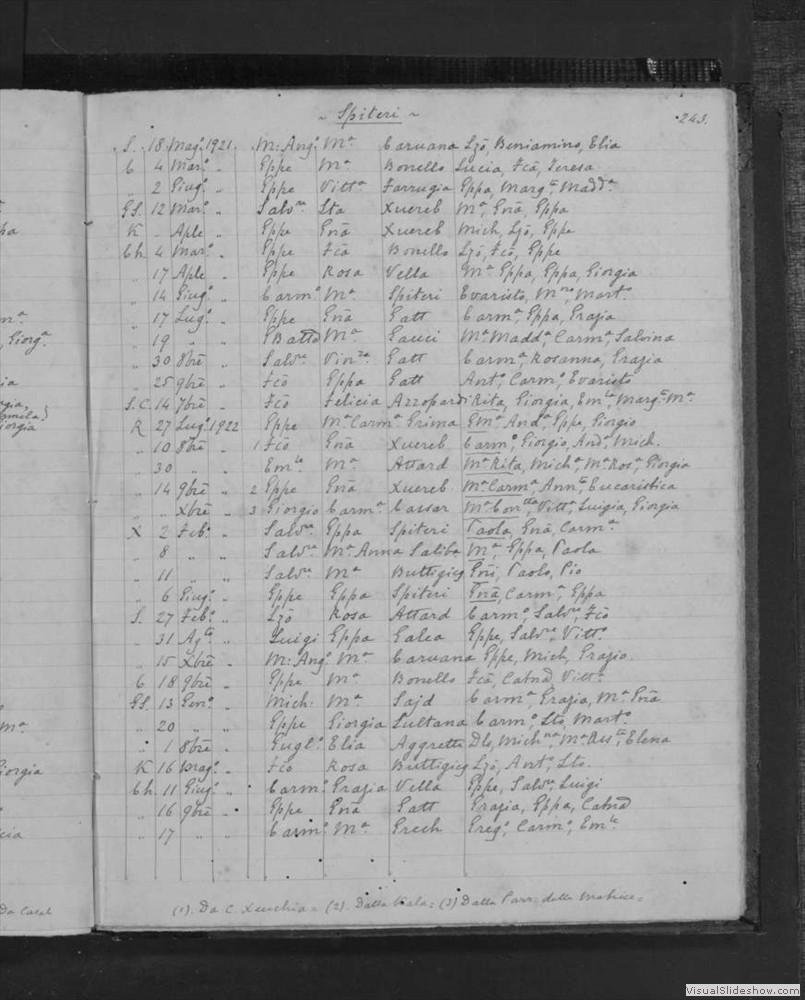 ~ Spiteri ~
243.
S. 18 Magº 1921. M: Angº Mª Caruana Ljō, Beniamino, Elia
C 4 Marº " Gppe Mª Bonello Lucia, Fcō, Teresa
" 2 Giugº " Gppe Vittª Farrugia Gppa, Margᵗᵃ Maddª
GS. 12 Marº " Salvʳᵉ Sta Xuereb Mª, Gnā, Gppa
K - Aple " Gppe Gnā Xuereb Mich, Ljō, Gppe
Ch 4 Marº " Gppe Fcā Bonello Ljō, Fcō, Gppe
" 17 Aple " Gppe Rosa Vella Mª Gppa, Gppa, Giorgia
" 14 Giugº " Carmº Mª Spiteri Evaristo, Martº
" 17 Lugº " Gppe Gnā Gatt Carmª, Gppa, Grazia
" 19 " " GBattā Mª Gauci Mª Maddª Carmª, Salvina
" 30 8brē " Salvʳᵉ Vinᶻᵃ Gatt Carmª, Rosanna, Grazia
" 25 9brē " Fcō Gppa Gatt Antº, Carmº, Evaristo
S.C. 14 7brē " Fcō Felicia Azzopardi Rita, Giorgia, Emˡᵃ, Margᵗᵃ Mª
R 27 Lugº 1922 Gppe Mª Carmª Grima Gmª Andª, Gppe, Giorgio
" 10 8brē " 1 Fcō Gnā Xuereb Carmº, Giorgio, Andª, Mich.
" 30 " " Emˡᵉ Mª Attard Mª Rita, Michª, Mª Rosª, Giorgia
" 14 9brē " 2 Gppe Gnā Xuereb Mª Carmª, Annᵗᵃ, Eucaristica
" " Xbrē " 3 Giorgio Carmª Cassar Mª Conᵗᵗᵃ, Vittª, Luigia, Giorgia
X 2 Febº " Salvʳᵉ Gppa Spiteri Paola, Gnā, Carmª
" 8 " " Salvʳᵉ Mª Anna Saliba Mª, Gppa, Paola
" 11 " " Salvʳᵉ Mª Buttigieg Gnī, Paolo, Pio
" 6 Giugº " Gppe Gppa Spiteri Gnā, Carmª, Gppa
S. 27 Febº " Ljō Rosa Attard Carmº, Salvʳᵉ, Fcō
" 31 Agᵗᵒ " Luigi Gppa Galea Gppe, Salvʳᵉ, Vittº
" 15 Xbrē " M: Angº Mª Caruana Gppe, Mich, Grazio
C 18 9brē " Gppe Mª Bonello Fcā, Catnā, Vittª
GS. 13 Genº " Mich. Mª Sajd Carmª, Grazia, Mª Gnā
" 20 " " Gppe Giorgia Sultana Carmº, Stō, Martº
" 1 8brē " Guglº Elia Aggretta Elena
K 16 Magº " Fcō Rosa Buttigieg Ljō, Antº, Sto.
Ch 11 Giugº " Carmº Grazia Vella Gppe, Salvʳᵉ, Luigi
" 16 9brē " Gppe Gnā Gatt Grazia, Gppa, Catnā
" 17 " " Carmº Mª Grech Gregº, Carmº, Emˡᵉ
(1). Da C. Xeuchia = (2). Dalla Kala = (3) Dalla Parr: della Matrice =